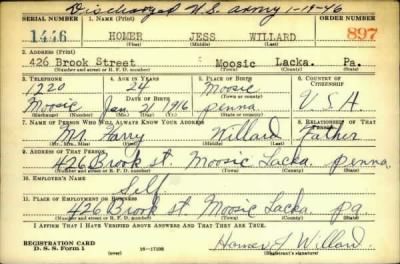 Discharged U.S. Army 1-19-46
SERIAL NUMBER 1. NAME (Print) ORDER NUMBER
1446 HOMER JESS WILLARD 897
(First) (Middle) (Last)
2. ADDRESS (Print)
426 Brook Street Moosic Lacka. Pa.
(Number and street or R. F. D. number) (Town) (County) (State)
3. TELEPHONE 4. AGE IN YEARS 5. PLACE OF BIRTH 6. COUNTRY OF CITIZENSHIP
1220 24 Moosic
DATE OF BIRTH (Town or county)
Moosic Jan. 21, 1916 Penna U.S.A.
(Exchange) (Number) (Mo.) (Day) (Yr.) (State or country)
7. NAME OF PERSON WHO WILL ALWAYS KNOW YOUR ADDRESS 8. RELATIONSHIP OF THAT PERSON
Mr. Harry Willard Father
(Mr., Mrs., Miss) (First) (Middle) (Last)
9. ADDRESS OF THAT PERSON
426 Brook St. Moosic Lacka. Penna
(Number and street or R. F. D. number) (Town) (County) (State)
10. EMPLOYER'S NAME
Self
11. PLACE OF EMPLOYMENT OR BUSINESS
426 Brook St. Moosic Lacka. Pa
(Number and street or R. F. D. number) (Town) (County) (State)
I AFFIRM THAT I HAVE VERIFIED ABOVE ANSWERS AND THAT THEY ARE TRUE.
REGISTRATION CARD
D. S. S. Form 1 (over) 16-17105 Homer J Willard
(Registrant's signature)